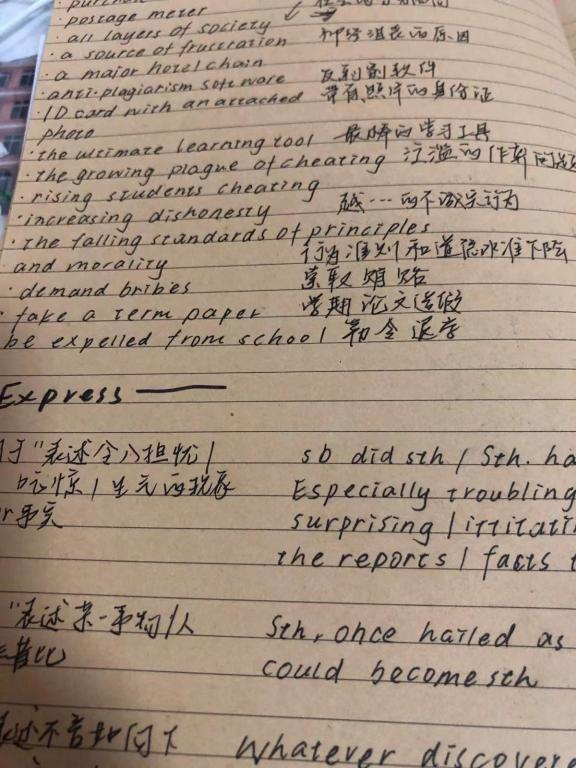 postage meter
· all layers of society
· a source of frustration 神经沮丧的原因
· a major hotel chain
· anti-plagiarism software 反剽窃软件
· ID card with an attached 带有照片的身份证
photo
· the ultimate learning tool 最终的学习工具
· the growing plague of cheating 泛滥的作弊问题
· rising students cheating
· increasing dishonesty 越…的不诚实行为
· the falling standards of principles
and morality 行为准则和道德水准下降
· demand bribes 索取贿赂
· fake a term paper 学期论文造假
be expelled from school 勒令退学
Express
"表述令人担忧/ sb did sth / Sth. ha
吃惊/生气的现象 Especially troubling
r事实 surprising / irritati
the reports / facts t
"表述某一事物/人 Sth. once hailed as
昔比 could become sth
表述不管如何下 Whatever discovere